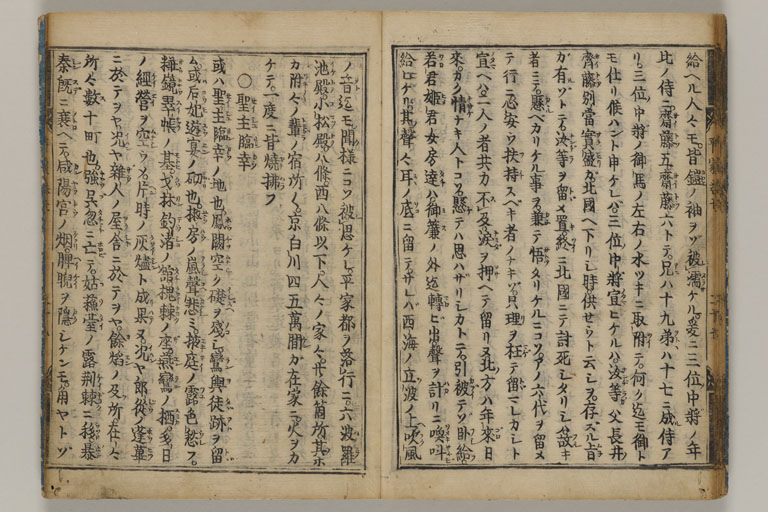 給ヘル人々モ皆鎧ノ袖ヲゾ被濡ケル爰ニ三位中将ノ年
比ノ侍ニ齋藤五齋藤六トテ兄ハ十九弟ハ十七ニ成侍ア
リ三位中将ノ御馬ノ左右ノ水ツキニ取附テ何ク迄モ御ト
モ仕リ候ハント申ケレハ三位中将宣ヒケルハ汝等カ父長井
齊藤別當實盛カ北國ヘ下リシ時供せウト云シヲ存ズル旨
カ有ソトテ汝等ヲ留メ置終ニ北國ニテ討死シタリシハ故キ
者ニテ懸ヘカリケル事ヲ兼テ悟タリケルニコソアノ六代ヲ留メ
テ行ニ心安ウ扶持スベキ者ノナキゾ只理ヲ枉テ留マレカシト
宣ヘハ二人ノ者共力不及涙ヲ押ヘテ留リヌ北方ハ年來日
來カク情ナキ人トコソ懸テハ思ハザリシカトテ引被テゾ臥給
若君姫君女房達ハ御簾ノ外迄轉ヒ出聲ヲ計リニ喚叫
給ヒケル其聲々耳ノ底ニ留テサレハ西海ノ立波ノ上吹風
ノ音迄モ聞様ニコソ被思ケレ平家都ヲ落行ニ六波羅
池殿小松殿八條西八條以下人々ノ家々廿余箇所其外
次々ノ輩ノ宿所々々京白川四五萬間カ在家ニ火ヲカ
ケテ一度ニ皆燒拂フ
〇聖主臨幸
或ハ聖主臨幸ノ地也鳳闕空ク礎ヲ殘シ鸞輿徒跡ヲ留
ム或后妃遊宴ノ砌也椒房ノ嵐聲悲ミ掖庭ノ露色愁フ
粧鏡翠帳ノ基戈林釣渚ノ館槐棘ノ座鵷鸞ノ栖多日
ノ經營ヲ空ウメ片時ノ灰燼ト成果ヌ况ヤ郎從ノ蓬蓽
ニ於テヲヤ况ヤ雜人ノ屋舎ニ於テヲヤ餘焔ノ及所在々々
所々數十町也強呉忽ニ亡テ姑蘓臺ノ露荆棘ニ移暴
秦既ニ衰ヘテ咸陽宮ノ烟睥睨ヲ隱シケンモ角ヤトゾ